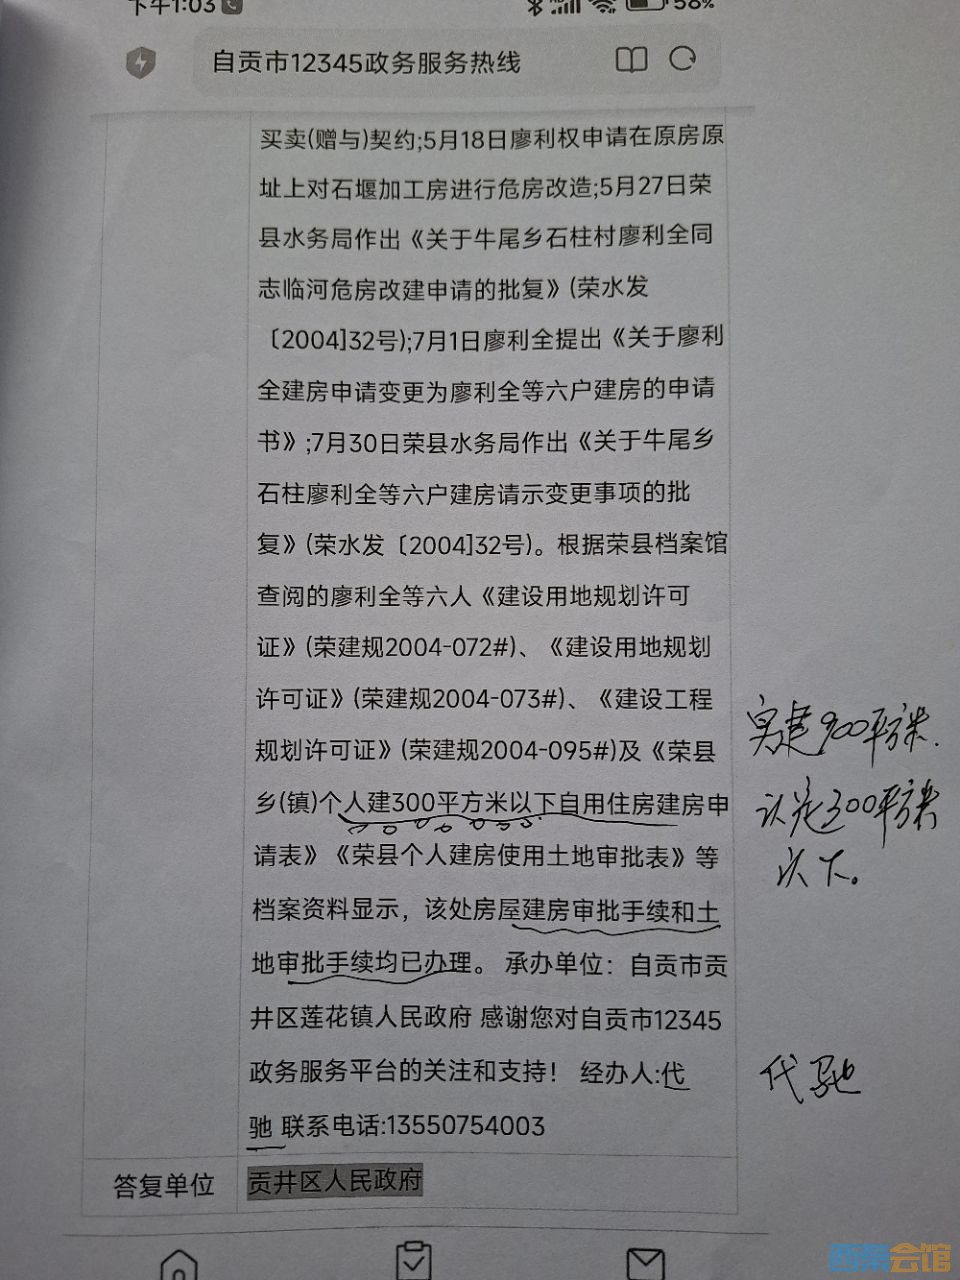 下午1:03
58%
自贡市12345政务服务热线
买卖(赠与)契约;5月18日廖利权申请在原房原
址上对石堰加工房进行危房改造;5月27日荣
县水务局作出《关于牛尾乡石柱村廖利全同
志临河危房改建申请的批复》(荣水发
〔2004]32号);7月1日廖利全提出《关于廖利
全建房申请变更为廖利全等六户建房的申请
书》;7月30日荣县水务局作出《关于牛尾乡
石柱廖利全等六户建房请示变更事项的批
复》(荣水发〔2004]32号)。根据荣县档案馆
查阅的廖利全等六人《建设用地规划许可
证》(荣建规2004-072#)、《建设用地规划
许可证》(荣建规2004-073#)、《建设工程
规划许可证》(荣建规2004-095#)及《荣县
乡(镇)个人建300平方米以下自用住房建房申
请表》《荣县个人建房使用土地审批表》等
档案资料显示，该处房屋建房审批手续和土
地审批手续均已办理。 承办单位：自贡市贡
井区莲花镇人民政府 感谢您对自贡市12345
政务服务平台的关注和支持！ 经办人:代
驰 联系电话:13550754003
答复单位 贡井区人民政府
实建900平方米.
认定300平方米
以下。
代驰
西秦会馆